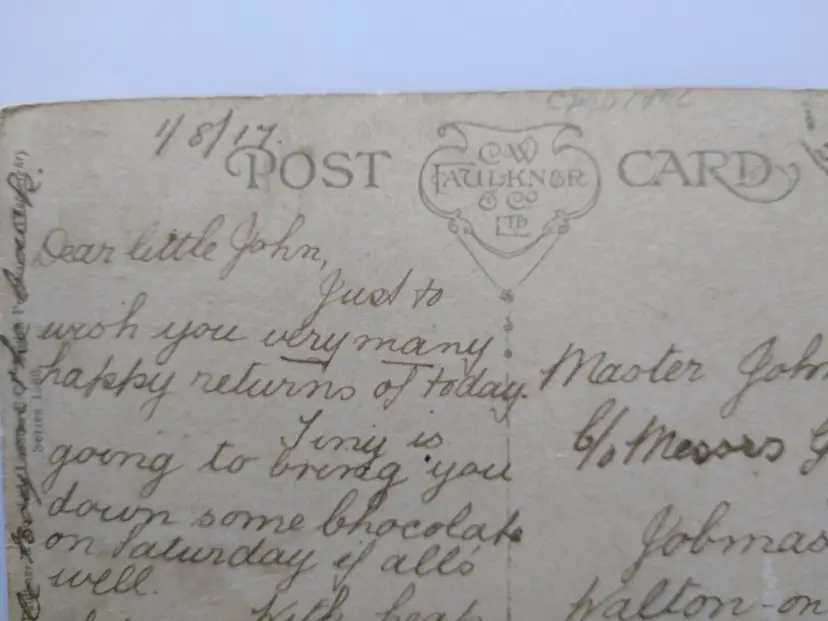 1/8/17.
POST CARD
C.W.
FAULKNER
& Co
LTD
Dear little John,
Just to
wish you very many
happy returns of today.
Tiny is
going to bring you
down some Chocolate
on Saturday if all's
well.
With heap
Master John
C/o Messrs
Jobmas
Walton-on
Series